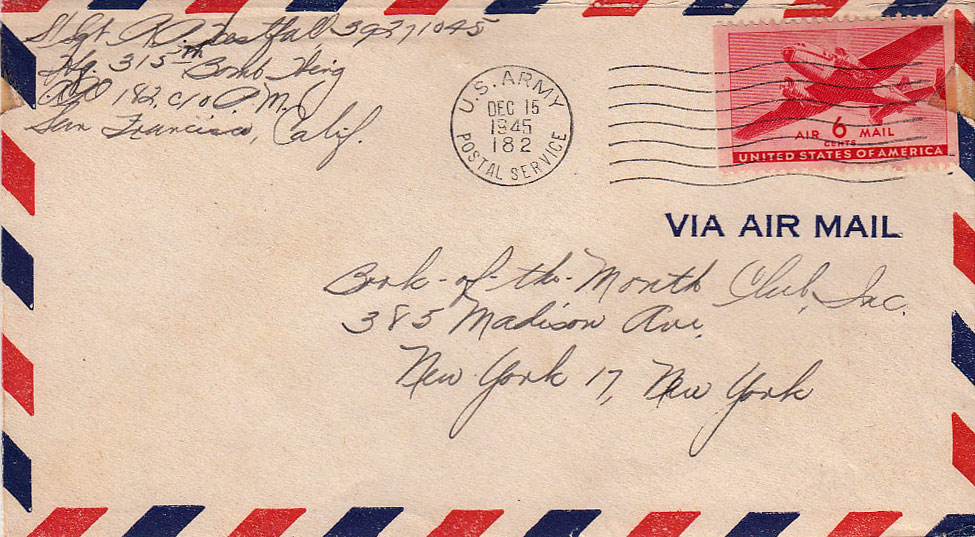 S/Sgt R. D. Westfall 39271045
Hq. 315th Bomb Wing
APO 182, c/o P.M.
San Francisco, Calif.
U.S. ARMY
DEC 15
1945
182
POSTAL SERVICE
AIR 6 MAIL
CENTS
UNITED STATES OF AMERICA
VIA AIR MAIL
Book-of-the-Month Club, Inc.
385 Madison Ave.
New York 17, New York